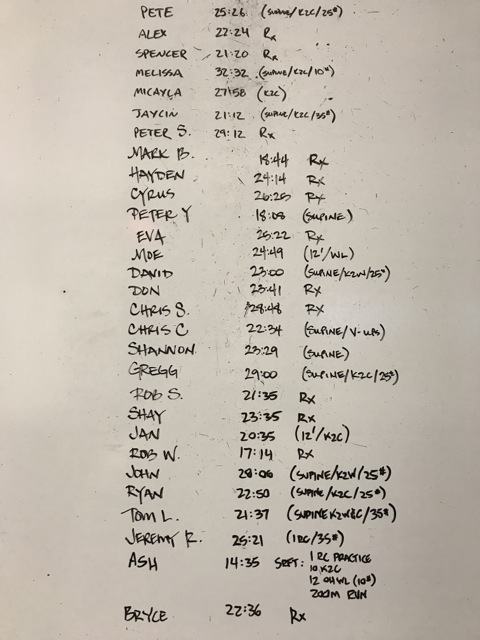 PETE 25:26 (SUPINE/K2C/25#)
ALEX 22:24 Rx
SPENCER 21:20 Rx
MELISSA 32:32 (SUPINE/K2C/10#)
MICAYLA 27:58 (K2C)
JAYCIN 21:12 (SUPINE/K2C/35#)
PETER S. 29:12 Rx
MARK B. 18:44 Rx
HAYDEN 24:14 Rx
CYRUS 26:25 Rx
PETER Y 18:08 (SUPINE)
EVA 25:22 Rx
MOE 24:49 (12'/WL)
DAVID 23:00 (SUPINE/K2W/25#)
DON 23:41 Rx
CHRIS S. 28:48 Rx
CHRIS C 22:34 (SUPINE/V-UPS)
SHANNON 23:29 (SUPINE)
GREGG 29:00 (SUPINE/K2C/25#)
ROB S. 21:35 Rx
SHAY 23:35 Rx
JAN 20:35 (12'/K2C)
ROB W. 17:14 Rx
JOHN 28:06 (SUPINE/K2W/25#)
RYAN 22:50 (SUPINE/K2C/25#)
TOM L. 21:37 (SUPINE K2W&C/35#)
JEREMY R. 25:21 (1RC/35#)
ASH 14:35 3RFT: 1 RC PRACTICE
10 K2C
12 OHWL (10#)
200M RUN
BRYCE 22:36 Rx